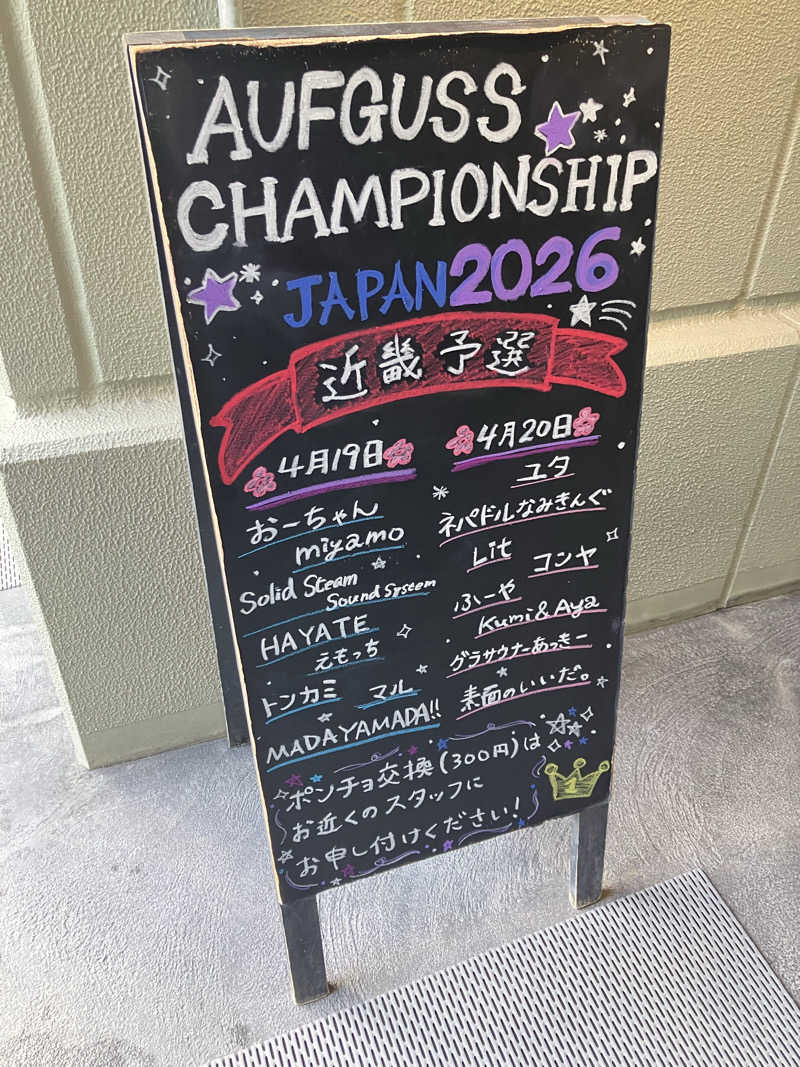 AUFGUSS
CHAMPIONSHIP
JAPAN 2026
近畿予選
4月19日
おーちゃん
miyamo
Solid Steam
Sound System
HAYATE
えもっち
トンカミ マル
MADAYAMADA!!
4月20日
ユタ
ネパドルなみきんぐ
Lit
コンヤ
ふーや
Kumi & Aya
グラサウナーあっきー
素面のいいだ。
ポンチョ交換(300円)は
お近くのスタッフに
お申し付けください!
1